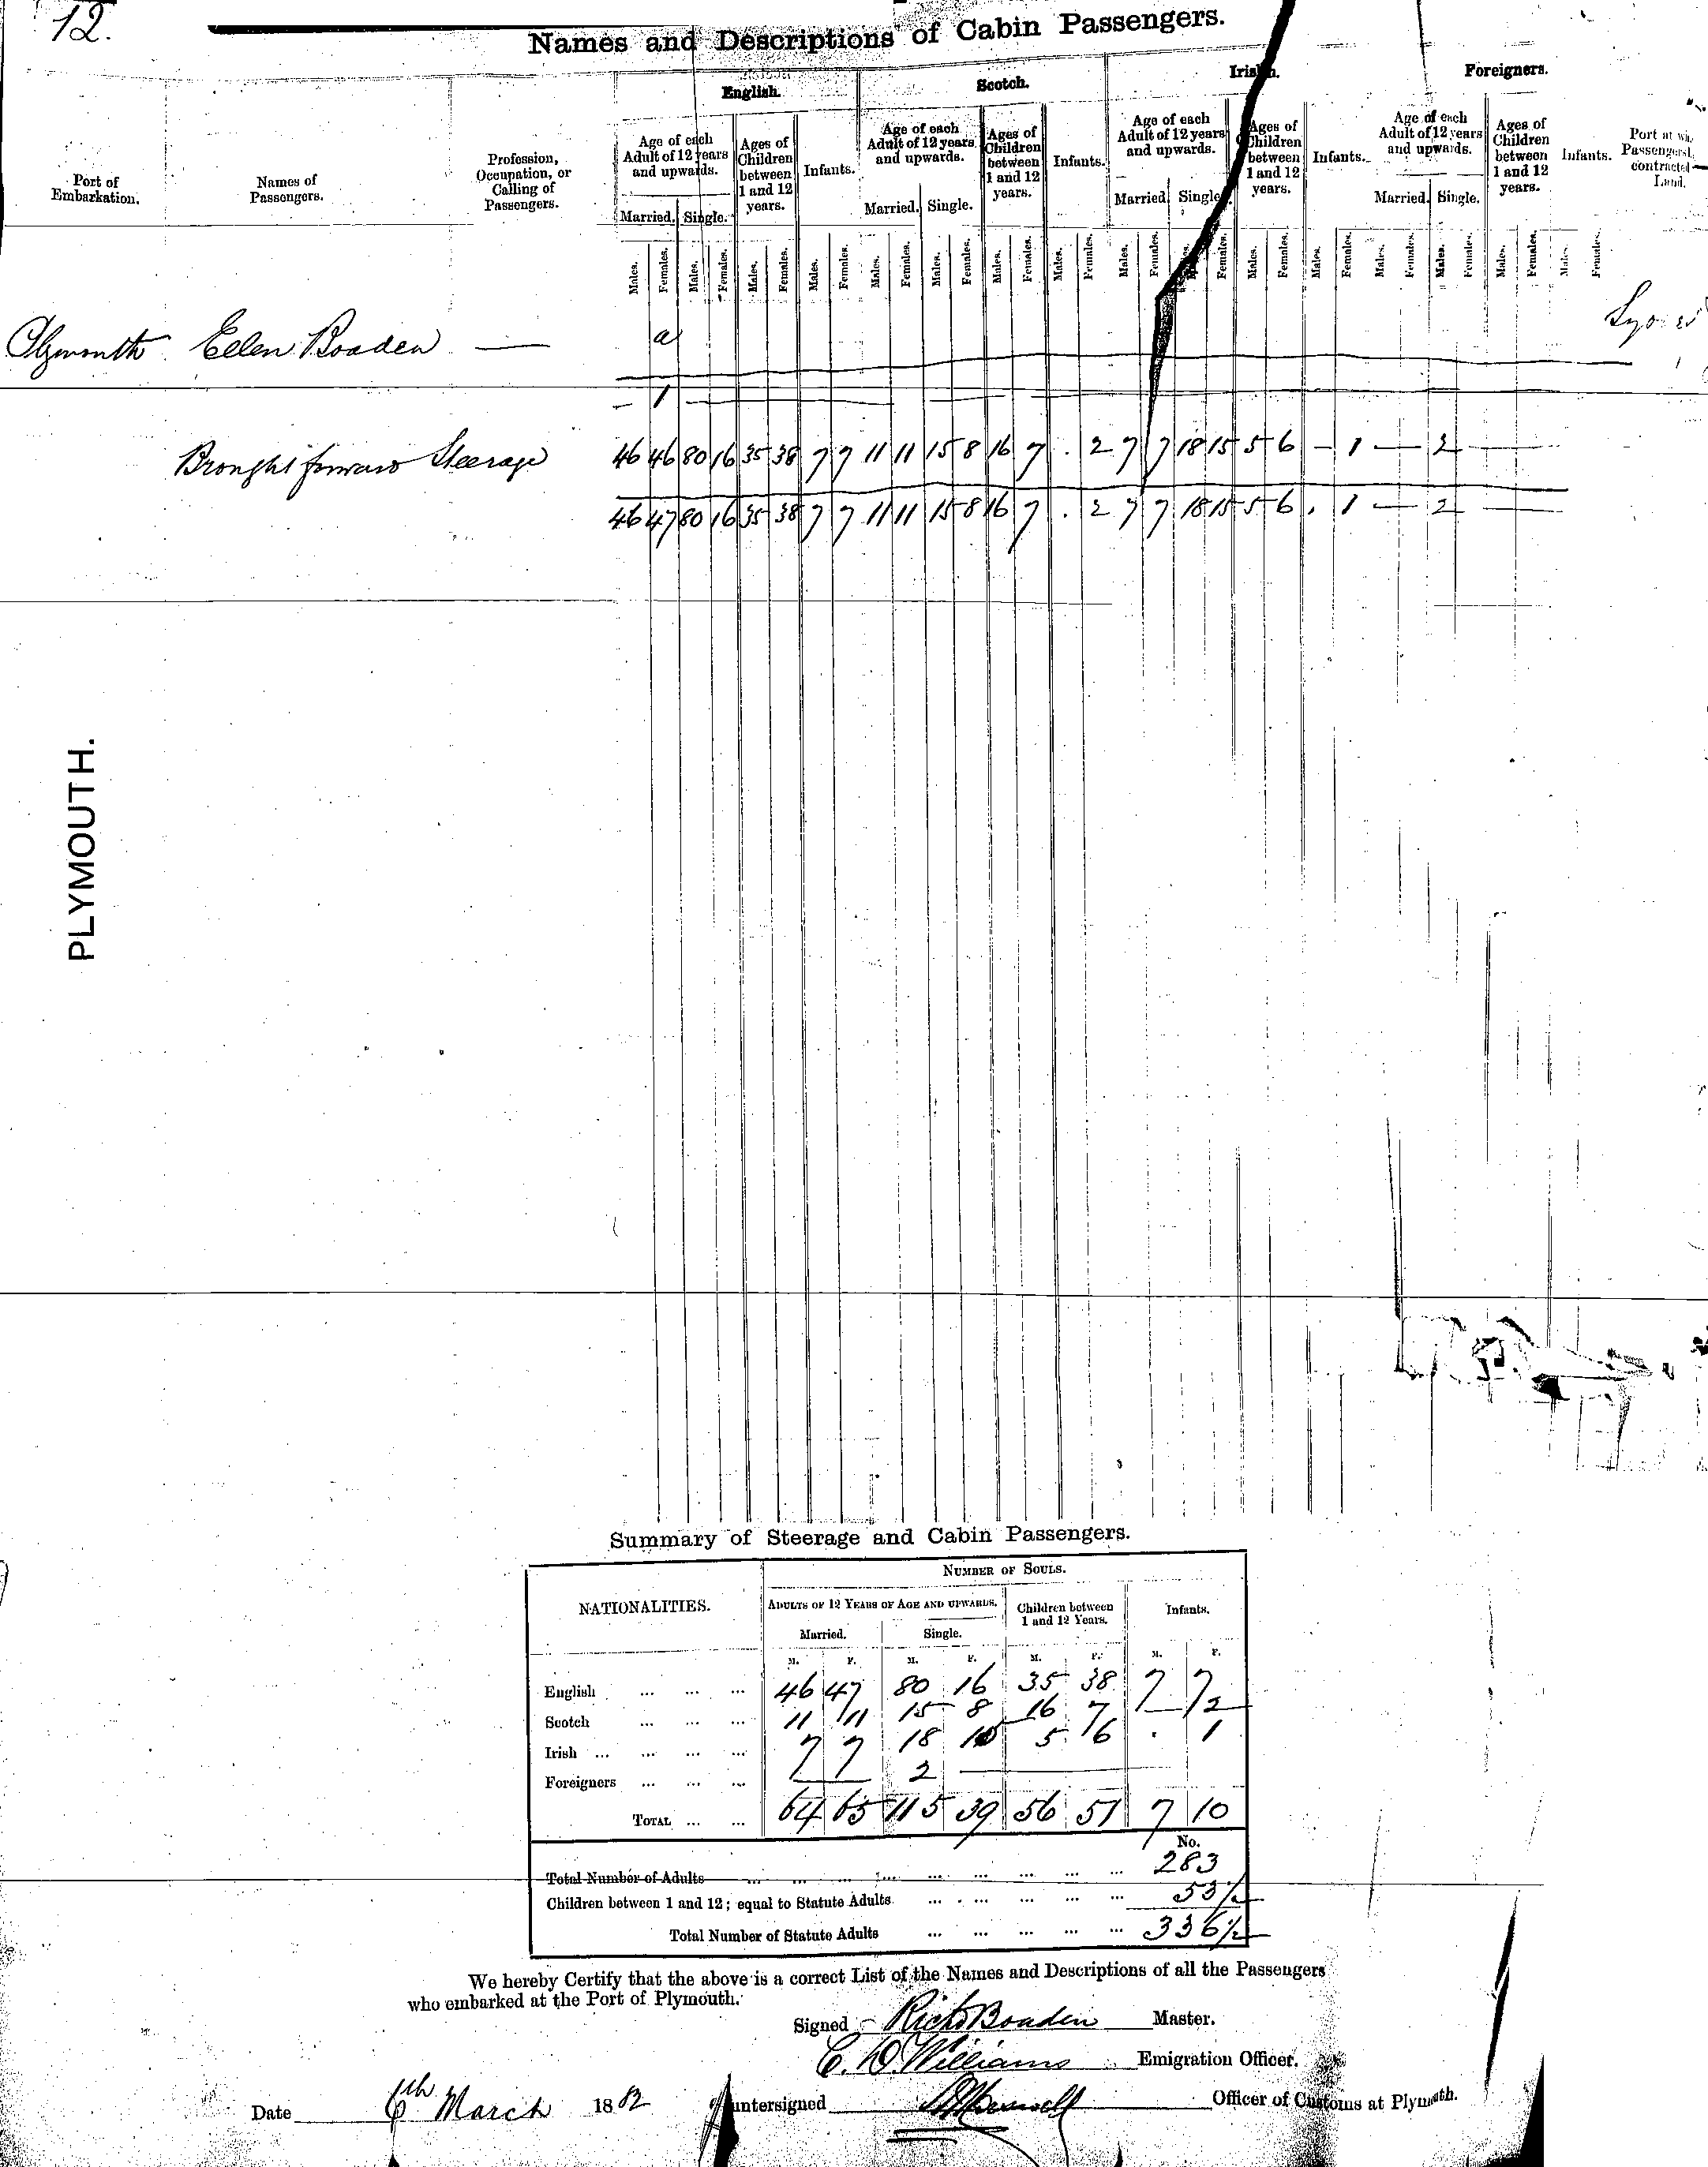 12.
Names and Descriptions of Cabin Passengers.
English. Scotch. Irish. Foreigners.
Port of Embarkation.
Names of Passengers.
Profession, Occupation, or Calling of Passengers.
Age of each Adult of 12 years and upwards. Ages of Children between 1 and 12 years. Infants. Age of each Adult of 12 years and upwards. Ages of Children between 1 and 12 years. Infants. Age of each Adult of 12 years and upwards. Ages of Children between 1 and 12 years. Infants. Age of each Adult of 12 years and upwards. Ages of Children between 1 and 12 years. Infants. Port at Passengers contracted Land.
Married. Single. Married. Single. Married. Single. Married. Single.
Males. Females. Males. Females. Males. Females. Males. Females. Males. Females. Males. Females. Males. Females. Males. Females. Males. Females. Males. Females. Males. Females. Males. Females. Males. Females. Males. Females. Males. Females. Males. Females.
Plymouth Ellen Boaden — a
— 1
Brought forward Steerage 46 46 80 16 35 38 7 7 11 11 15 8 16 7 . 2 7 7 18 15 5 6 — 1 — 2
46 47 80 16 35 38 7 7 11 11 15 8 16 7 . 2 7 7 18 15 5 6 . 1 — 2
PLYMOUTH.
Summary of Steerage and Cabin Passengers.
NUMBER OF SOULS.
NATIONALITIES. ADULTS OF 12 YEARS OF AGE AND UPWARDS. Children between 1 and 12 Years. Infants.
Married. Single.
M. F. M. F. M. F. M. F.
English ... ... ... 46 47 80 16 35 38 7 7
Scotch ... ... ... 11 11 15 8 16 7 — 2
Irish ... ... ... ... 7 7 18 15 5 6 . 1
Foreigners ... ... ... — — 2 —
TOTAL ... ... 64 65 115 39 56 51 7 10
No.
Total Number of Adults ... ... ... ... ... ... ... ... ... 283
Children between 1 and 12; equal to Statute Adults ... ... ... ... ... 53½
Total Number of Statute Adults ... ... ... ... ... 336½
We hereby Certify that the above is a correct List of the Names and Descriptions of all the Passengers
who embarked at the Port of Plymouth.
Signed Richd Boaden Master.
C. D. Williams Emigration Officer.
Date 6th March 1882 Countersigned Officer of Customs at Plymouth.